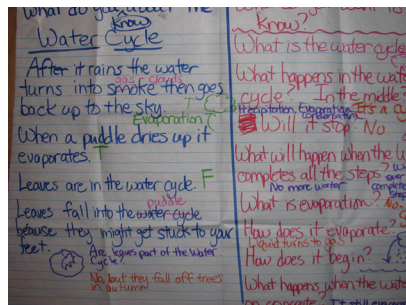 What do you about the
Know
Water Cycle
After it rains the water
gas or clouds
turns into smoke then goes
back up to the sky. T
Evaporation
When a puddle dries up it
evaporates. T
Leaves are in the water cycle. F
puddle
Leaves fall into the water cycle
because they might get stuck to your
feet.
Are leaves part of the Water
Cycle?
No, but they fall off trees
in autumn
want to
Know?
What is the water cycle
What happens in the water
cycle? In the middle
Precipitation, Evaporation,
It's a
Will it stop No
What will happen when the W
completes all the steps?
No more water
What is evaporation?
How does it evaporate?
Liquid turns to gas
How does it begin?
What happens, when the water
on concrete?